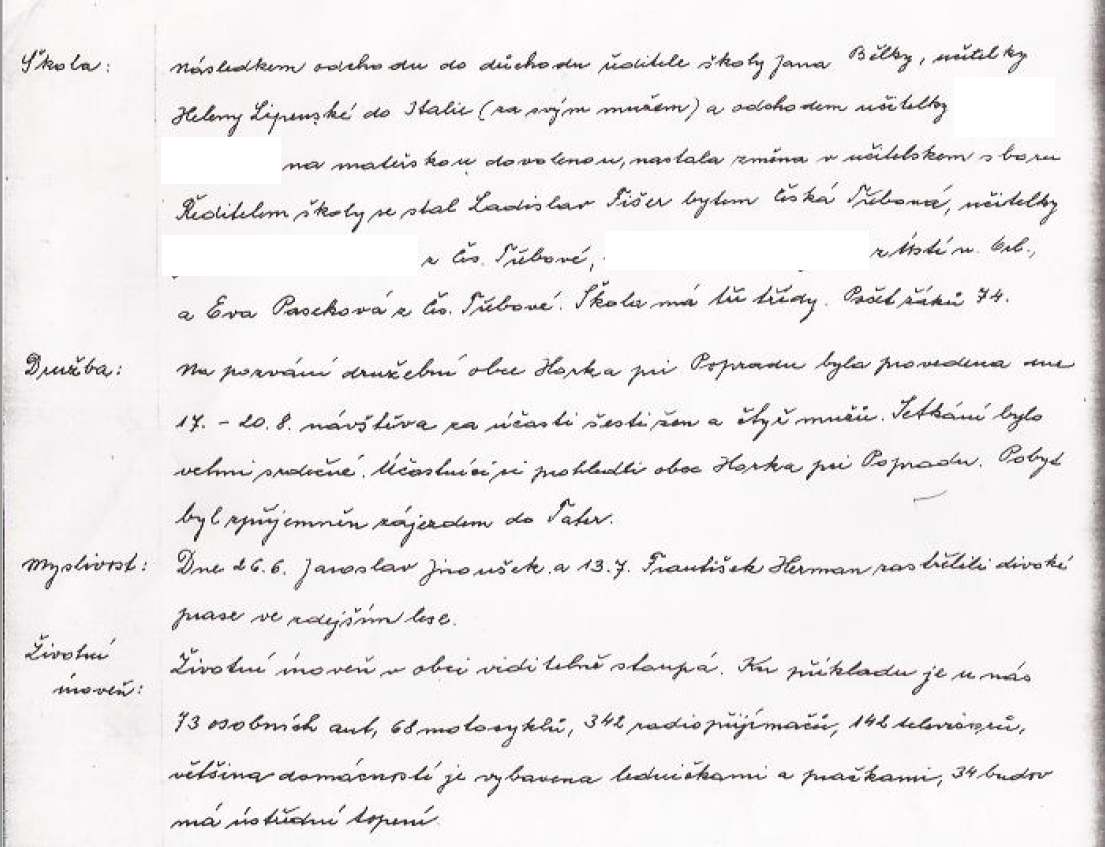 Škola: následkem odchodu do důchodu ředitele školy Jana Bělky, učitelky
Heleny Lipenské do Italie (za svým mužem) a odchodem učitelky
na mateřskou dovolenou, nastala změna v učitelském sboru
Ředitelem školy se stal Ladislav Fišer bytem Česká Třebová, učitelky
z Čes. Třebové, z Ústí n. Orl.,
a Eva Paseková z Čes. Třebové. Škola má tři třídy. Počet žáků 74.
Družba: Na pozvání družební obce Horka pri Popradu byla provedena dne
17. – 20. 8. návštěva za účasti šesti žen a čtyř mužů. Setkání bylo
velmi srdečné. Účastníci si prohledli obec Horka pri Popradu. Pobyt
byl zpříjemněn zájezdem do Tater.
Myslivost: Dne 26. 6. Jaroslav Jiroušek a 13. 7. František Herman zastřelili divoké
prase ve zdejším lese.
Životní úroveň: Životní úroveň v obci viditelně stoupá. Ku příkladu je u nás
73 osobních aut, 68 motocyklů, 342 radiopřijímačů, 142 televizorů,
většina domácností je vybavena ledničkami a pračkami, 34 budov
má ústřední topení.